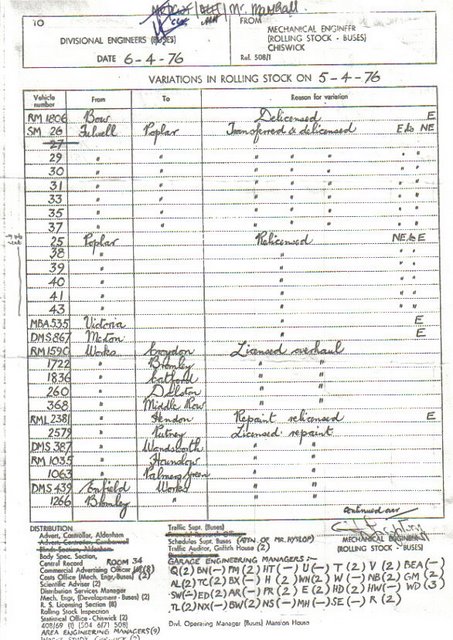 Mr. Marshall
TO
DIVISIONAL ENGINEERS (BUSES)
DATE 6-4-76
FROM
MECHANICAL ENGINEER
(ROLLING STOCK - BUSES)
CHISWICK
Ref. 508/1
VARIATIONS IN ROLLING STOCK ON 5-4-76
Vehicle number From To Reason for variation
RM 1806 Bow Delicensed E
SM 26 Fulwell Poplar Transferred & delicensed E to NE
27
29 " " " " " " "
30 " " " " " " "
31 " " " " " " "
33 " " " " " " "
35 " " " " " " "
37 " " " " " " "
25 Poplar Relicensed NE to E
38 " " " "
39 " " " "
40 " " " "
41 " " " "
43 " " " "
MBA 535 Victoria " E
DMS 867 Merton " E
RM 1590 Works Croydon Licensed overhaul
1722 " Bromley " "
1836 " Catford " "
260 " Dalston " "
368 " Middle Row " "
RML 2381 " Hendon Repaint relicensed E
2579 " Putney Licensed repaint
DMS 387 " Wandsworth
RM 1035 " Hounslow
1063 " Palmers Green
DMS 439 Enfield Works
1266 Bromley "
continued over
MECHANICAL ENGINEER
(ROLLING STOCK - BUSES)
DISTRIBUTION
Advert. Controller, Aldenham
Body Spec. Section,
Central Record ROOM 34
Commercial Advertising Officer (8)
Costs Office (Mech. Engr. Buses) (2)
Scientific Adviser (2)
Distribution Services Manager
Mech. Engr. (Development - Buses) (2)
R. S. Licensing Section (8)
Rolling Stock Inspection
Statistical Office - Chiswick (2)
AREA ENGINEERING MANAGERS (9)
Traffic Supt. (Buses)
Schedules Supt. (Buses) (ATTN. OF MR. HYSLOP)
Traffic Auditor, Griffith House (2)
GARAGE ENGINEERING MANAGERS :-
Divl. Operating Manager (Buses) Mansion House